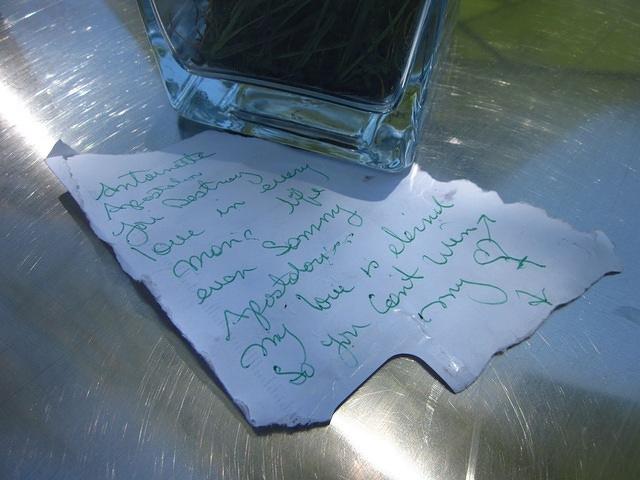 Antoinette
Apostolou
you destroy
love in every
man's life
even Sammy
Apostolou's
my love is eternal
so you can't win
my